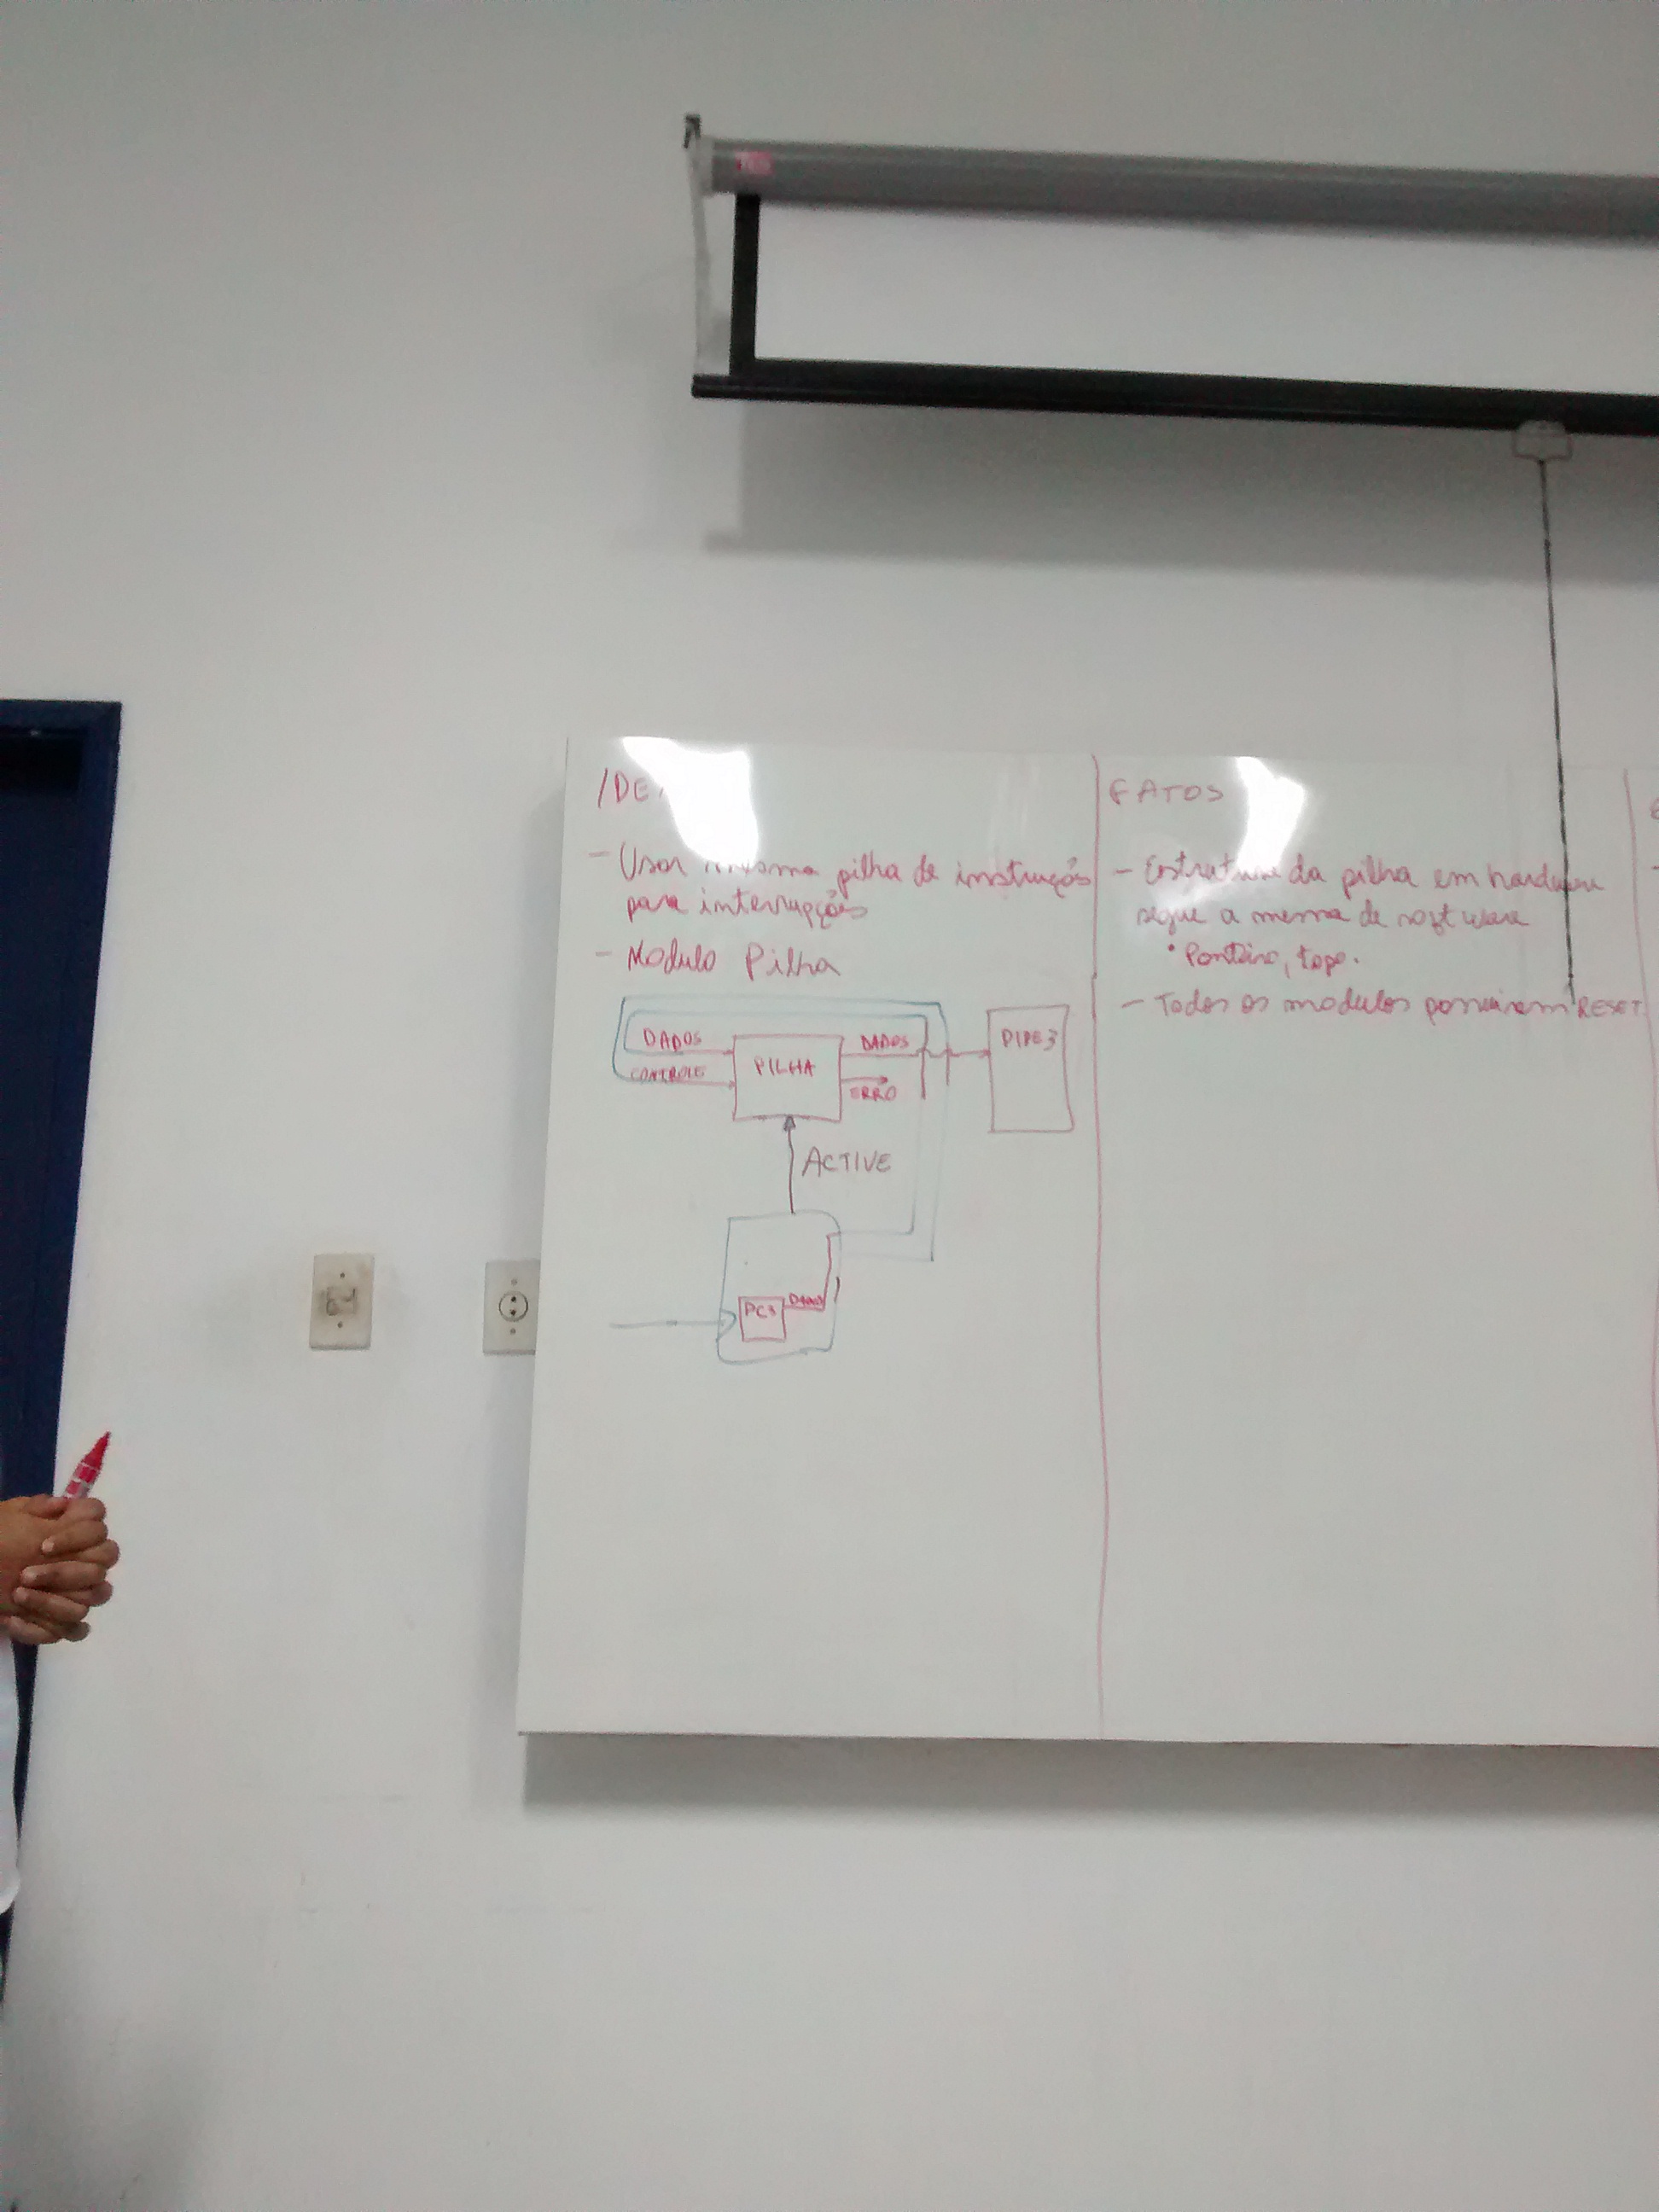 IDE
- Usar mesma pilha de instruções
para interrupções
- Modulo Pilha
DADOS
CONTROLE
PILHA
DADOS
ERRO
PIPE3
ACTIVE
PC3
DADOS
FATOS
- Estrutura da pilha em hardware
segue a mesma de software
• Ponteiro, topo.
- Todos os modulos possuirem RESET